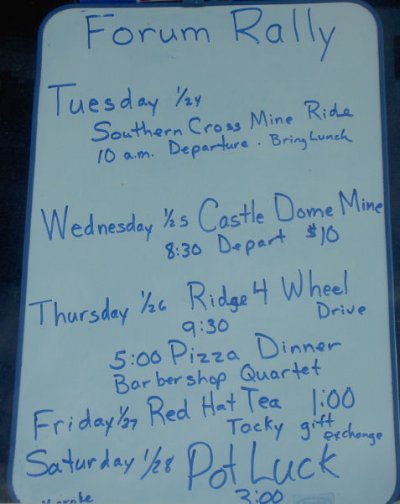 Forum Rally
Tuesday 1/24
Southern Cross Mine Ride
10 a.m. Departure. Bring Lunch
Wednesday 1/25 Castle Dome Mine
8:30 Depart $10
Thursday 1/26 Ridge 4 Wheel
9:30 Drive
5:00 Pizza Dinner
Barbershop Quartet
Friday 1/27 Red Hat Tea 1:00
Tacky gift exchange
Saturday 1/28 Pot Luck
3:00